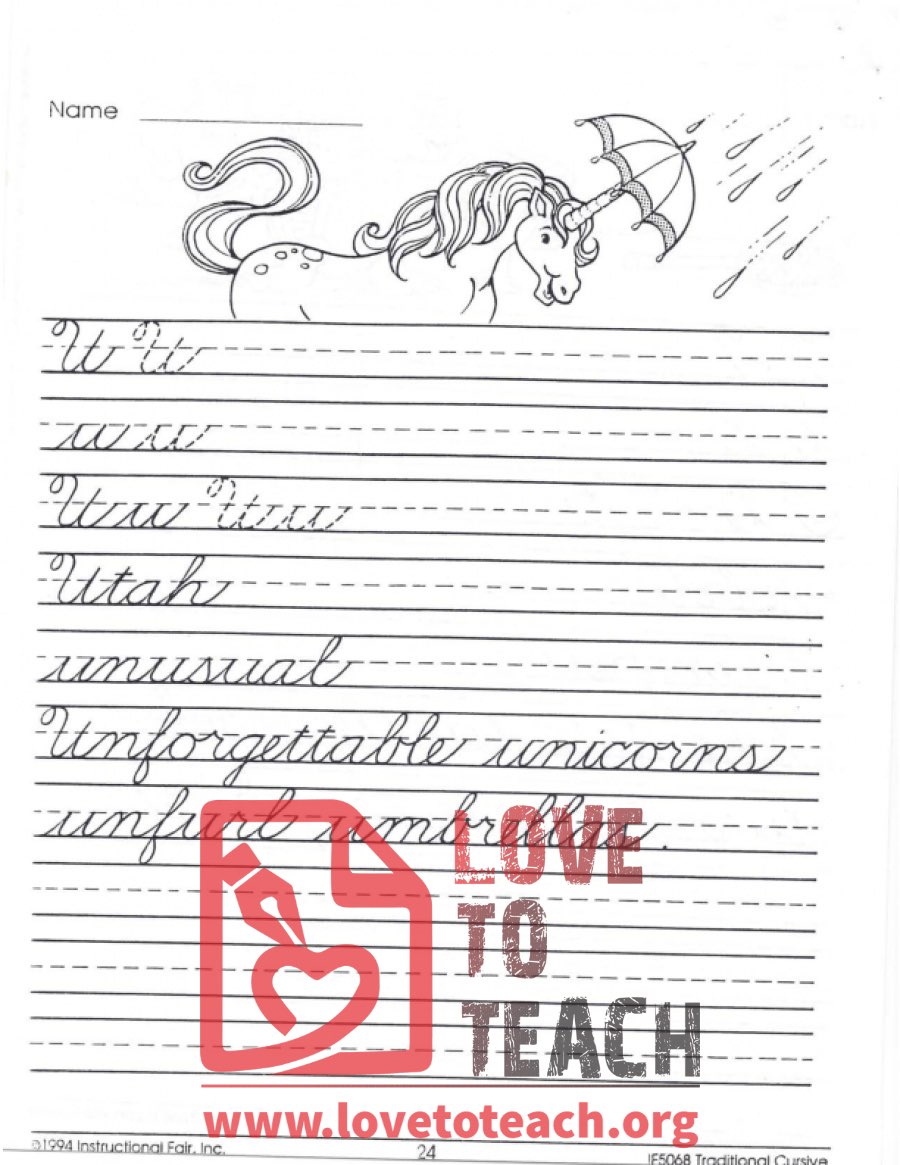 Name
U U
u u
Uu Uu
Utah
unusual
Unforgettable unicorns
unfurl umbrellas.
LOVE
TO
TEACH
www.lovetoteach.org
©1994 Instructional Fair, Inc. 24 IF5068 Traditional Cursive